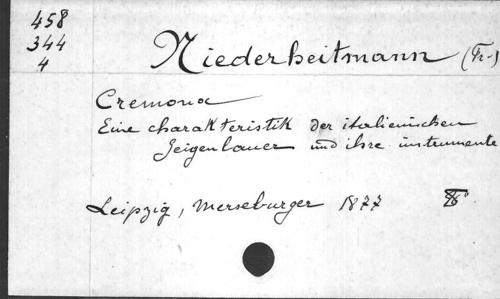 458
344
4
Niederheitmann (Fr.)
Cremona
Eine charakteristik der italienischen
Geigenbauer und ihre instrumente
Leipzig, Merseburger 1877